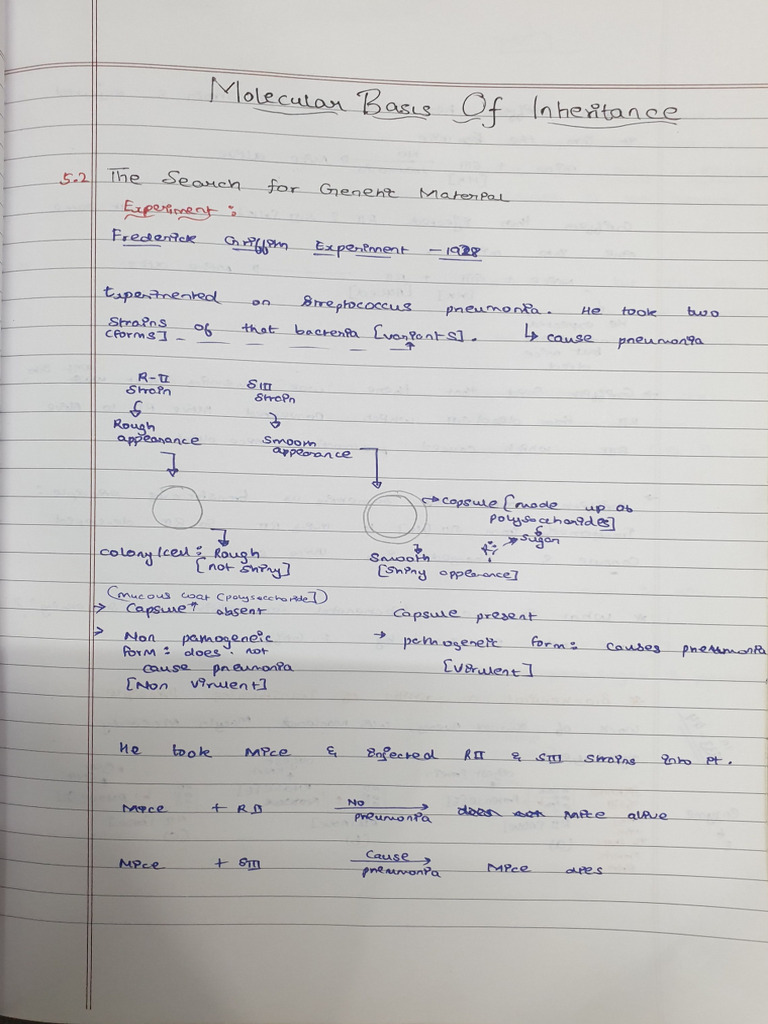 Molecular Basis Of Inheritance
5.2 The Search for Genetic Material
Experiment :
Frederick Griffith Experiment - 1928
Experimented on Streptococcus pneumonia. He took two
strains of that bacteria [variants]. ↳ cause pneumonia
(forms]
R-II strain
SIII strain
Rough appearance
Smooth appearance
→ capsule [made up of polysaccharides]
→ sugar
colony/cell : Rough [not shiny]
Smooth [shiny appearance]
(mucous coat (polysaccharide])
→ Capsule* absent
Capsule present
> Non pathogeneic form : does not cause pneumonia [Non virulent]
→ pathogeneic form : causes pneumonia [virulent]
He took Mice & injected RII & SIII strains into it.
Mice + RII No pneumonia → Mice alive
Mice + SIII Cause pneumonia → Mice dies